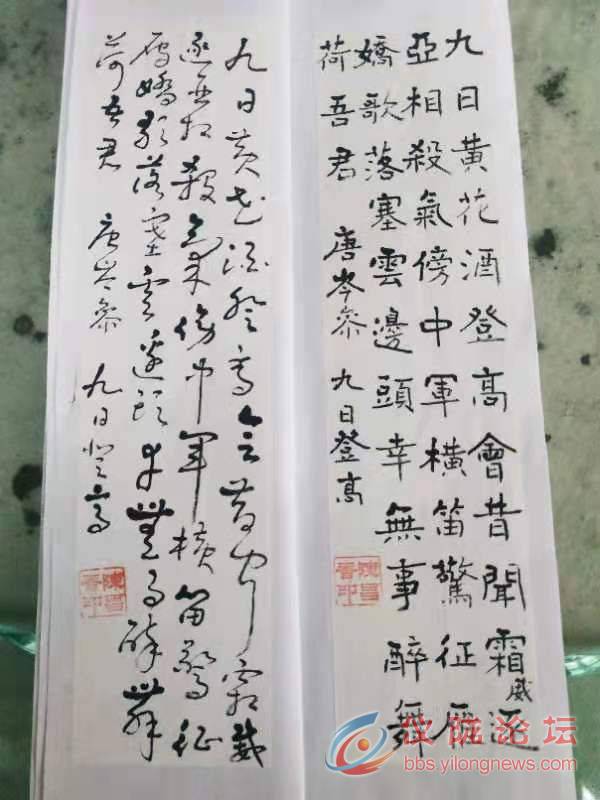 九日黃花酒登高會昔聞霜威逐
亞相殺氣傍中軍橫笛驚征雁
嬌歌落塞雲邊頭幸無事醉舞
荷吾君 唐岑參 九日登高
九日黃花酒登高會昔聞霜威
逐亞相殺氣傍中軍橫笛驚征
雁嬌歌落塞雲邊頭幸無事醉舞
荷吾君 唐岑參 九日登高
仪陇论坛
bbs.yilongnews.com